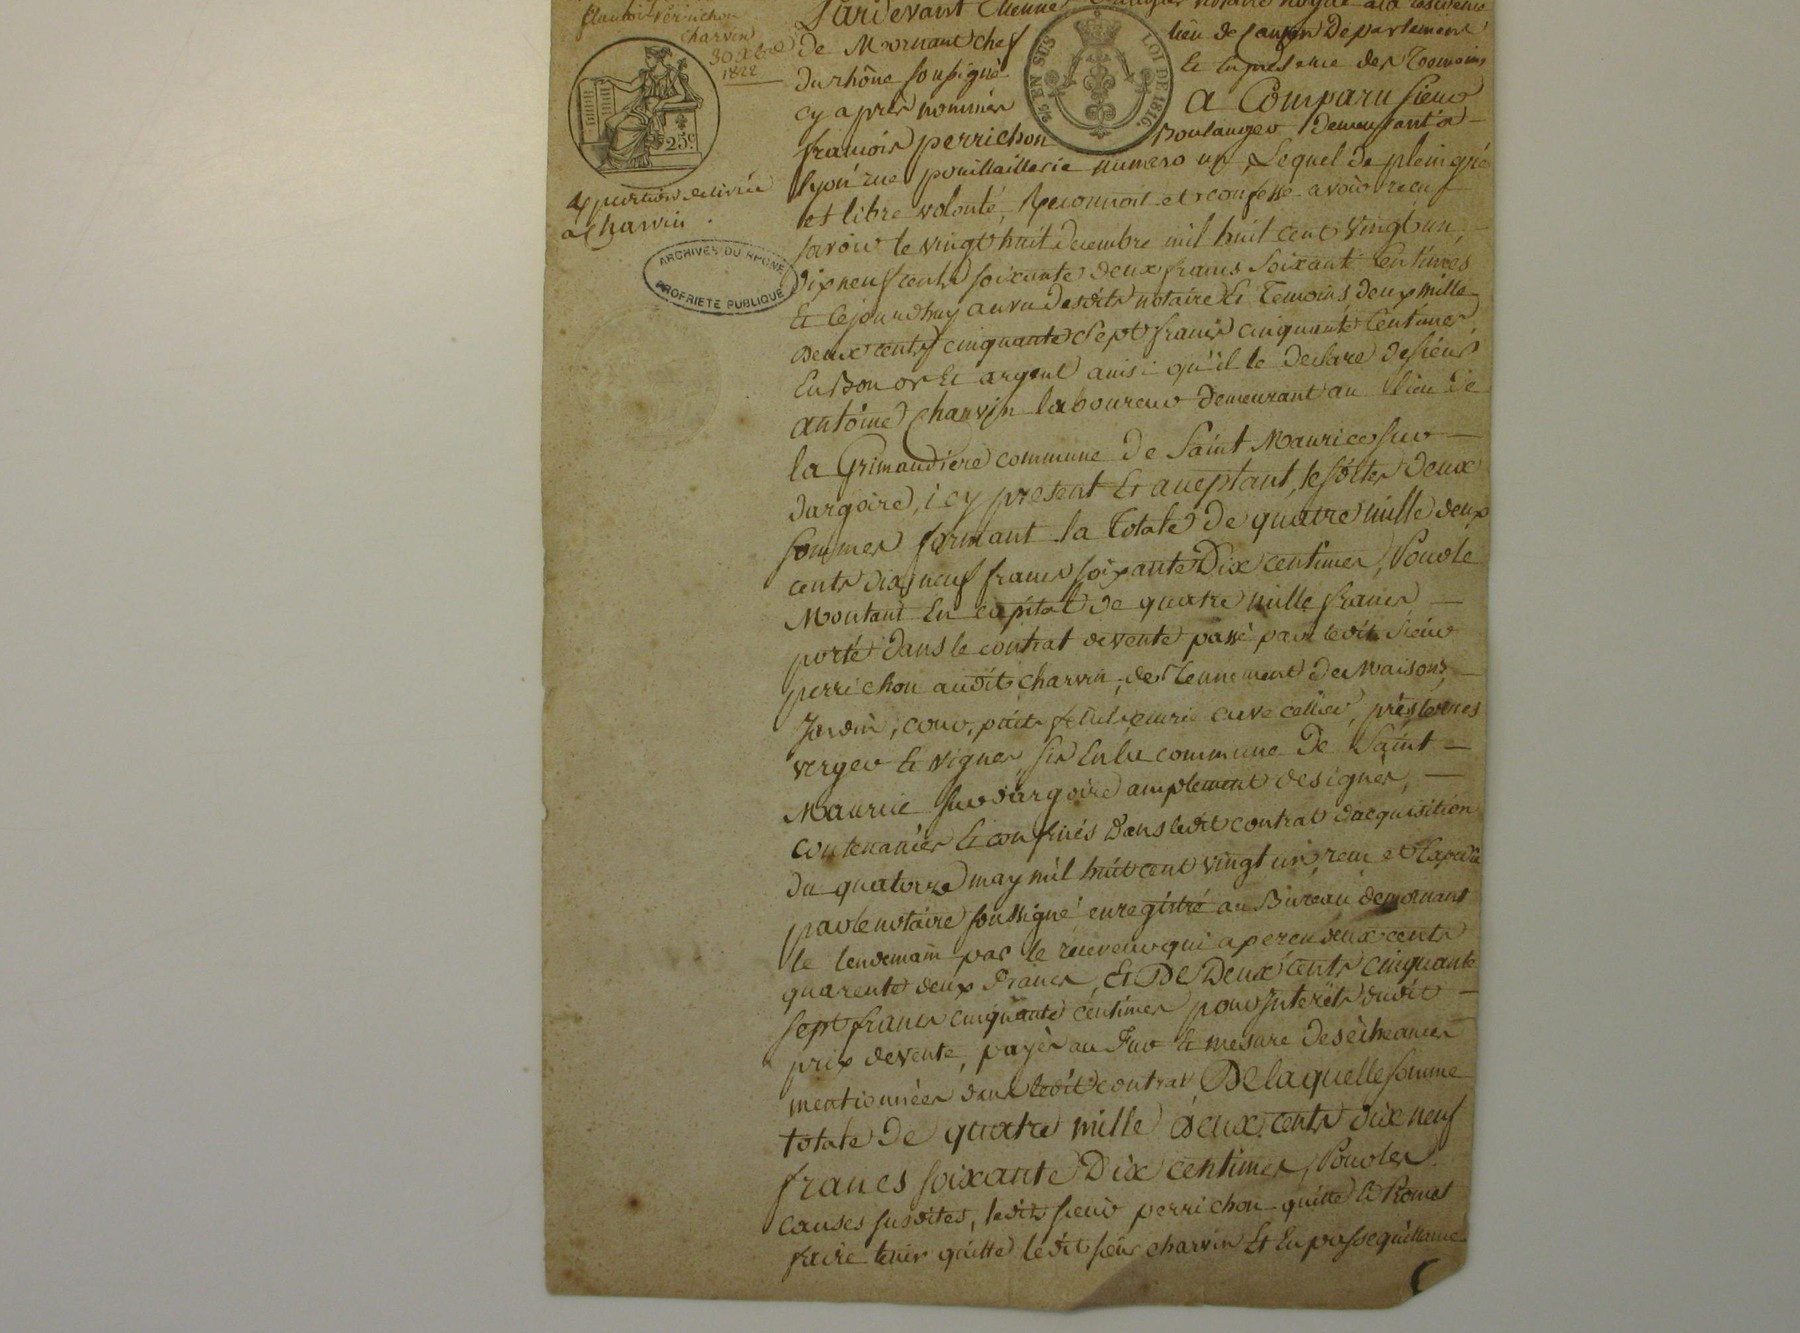 perrichon
charvin
30 Xbre
1822
25c
Expedition delivrée
a Charvin .
ARCHIVES DU RHONE
PROPRIETE PUBLIQUE
2/5 EN SUS
LOI DE 1816.
Pardevant Etienne notaire Royal ala residence
de Mornant chef lieu de Canton Departement
du rhône soussigné Et en presence des Temoins
cy apres nommés A Comparu sieur
francois perrichon Boulanger demeurant a
lyon rue poullaillerie numero un, Lequel de plein gré
et libre volonté, Reconnoit et confesse avoir reçu
savoir le vingt huit decembre mil huit cent vingt un,
dix neuf cents soixante deux francs Soixant centimes
Et cejourdhuy au vu desdits notaire Et Temoins, deux mille
deux cents cinquante sept francs cinquante Centimes,
En Bon or Et argent ainsi qu'il le declare de sieur
antoine Charvin laboureur demeurant au lieu de
la Grimaudiere commune de Saint Maurice sur
dargoire, icy present Et aceptant, lesdites deux
sommes formant la Totale de quatre mille deux
cents dix neuf francs soixante Dix centimes, Pour le
Montant En capital de quatre mille francs
porté dans le contrat de vente passé par ledit sieur
perrichon audit charvin, des Tennement de Maisons,
Jardin, cour, puits, ecurie cuve cellier, prés, terres
verger Et vignes sis En la commune de Saint
Maurice sur dargoire amplement designés,
contenances Et confinés dans ledit contrat dacquisition
du quatorze may mil huit cent vingt un, recu et Expedié
par le notaire soussigné enregistré au Bureau demornant
le lendemain par le receveur qui a percu deux cents
quarente deux francs, Et De Deux cents cinquante
sept francs cinquante centimes pour Interêts dudit
prix de vente, payés au Fur Et mesure des écheances
mentionnées dans ledit contrat De laquelle somme
totale de quatre mille deux cents dix neuf
francs soixante Dix centimes, Pour les
causes susdites, ledit sieur perrichon quitte Et Promet
faire tenir quitte ledit sieur charvin Et En passe quittance